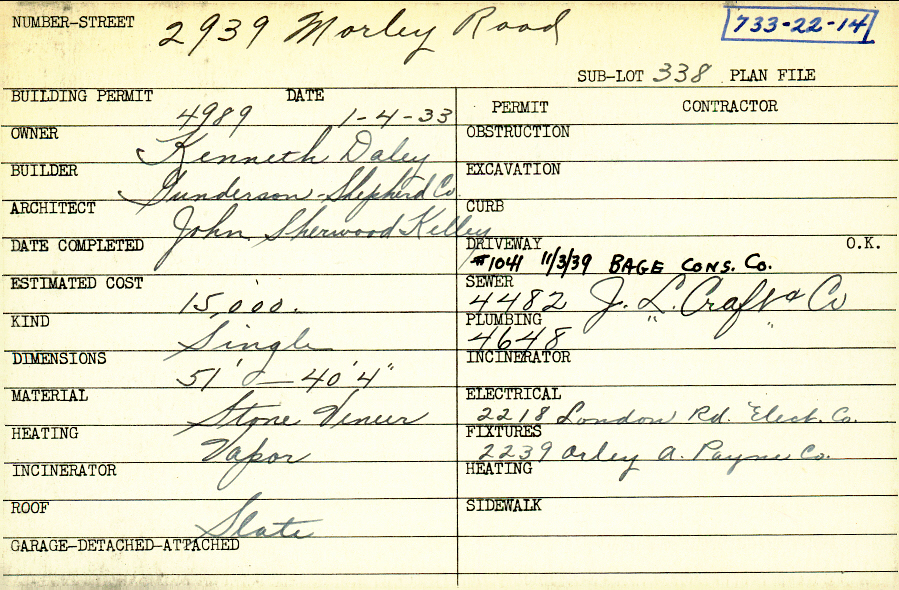 NUMBER-STREET 2939 Morley Road 733-22-14
SUB-LOT 338 PLAN FILE
BUILDING PERMIT 4989 DATE 1-4-33
OWNER Kenneth Daley
BUILDER Gunderson-Shepherd Co.
ARCHITECT John Sherwood Kelley
DATE COMPLETED
ESTIMATED COST 15,000.
KIND Single
DIMENSIONS 51' — 40'4"
MATERIAL Stone Veneer
HEATING Vapor
INCINERATOR
ROOF Slate
GARAGE-DETACHED-ATTACHED
PERMIT CONTRACTOR
OBSTRUCTION
EXCAVATION
CURB
DRIVEWAY O.K.
#1041 11/3/39 BAGE CONS. CO.
SEWER
4482 J. L. Craft & Co
PLUMBING
4648 " "
INCINERATOR
ELECTRICAL
2218 London Rd. Elect. Co.
FIXTURES
2239 Orley A. Payne Co.
HEATING
SIDEWALK